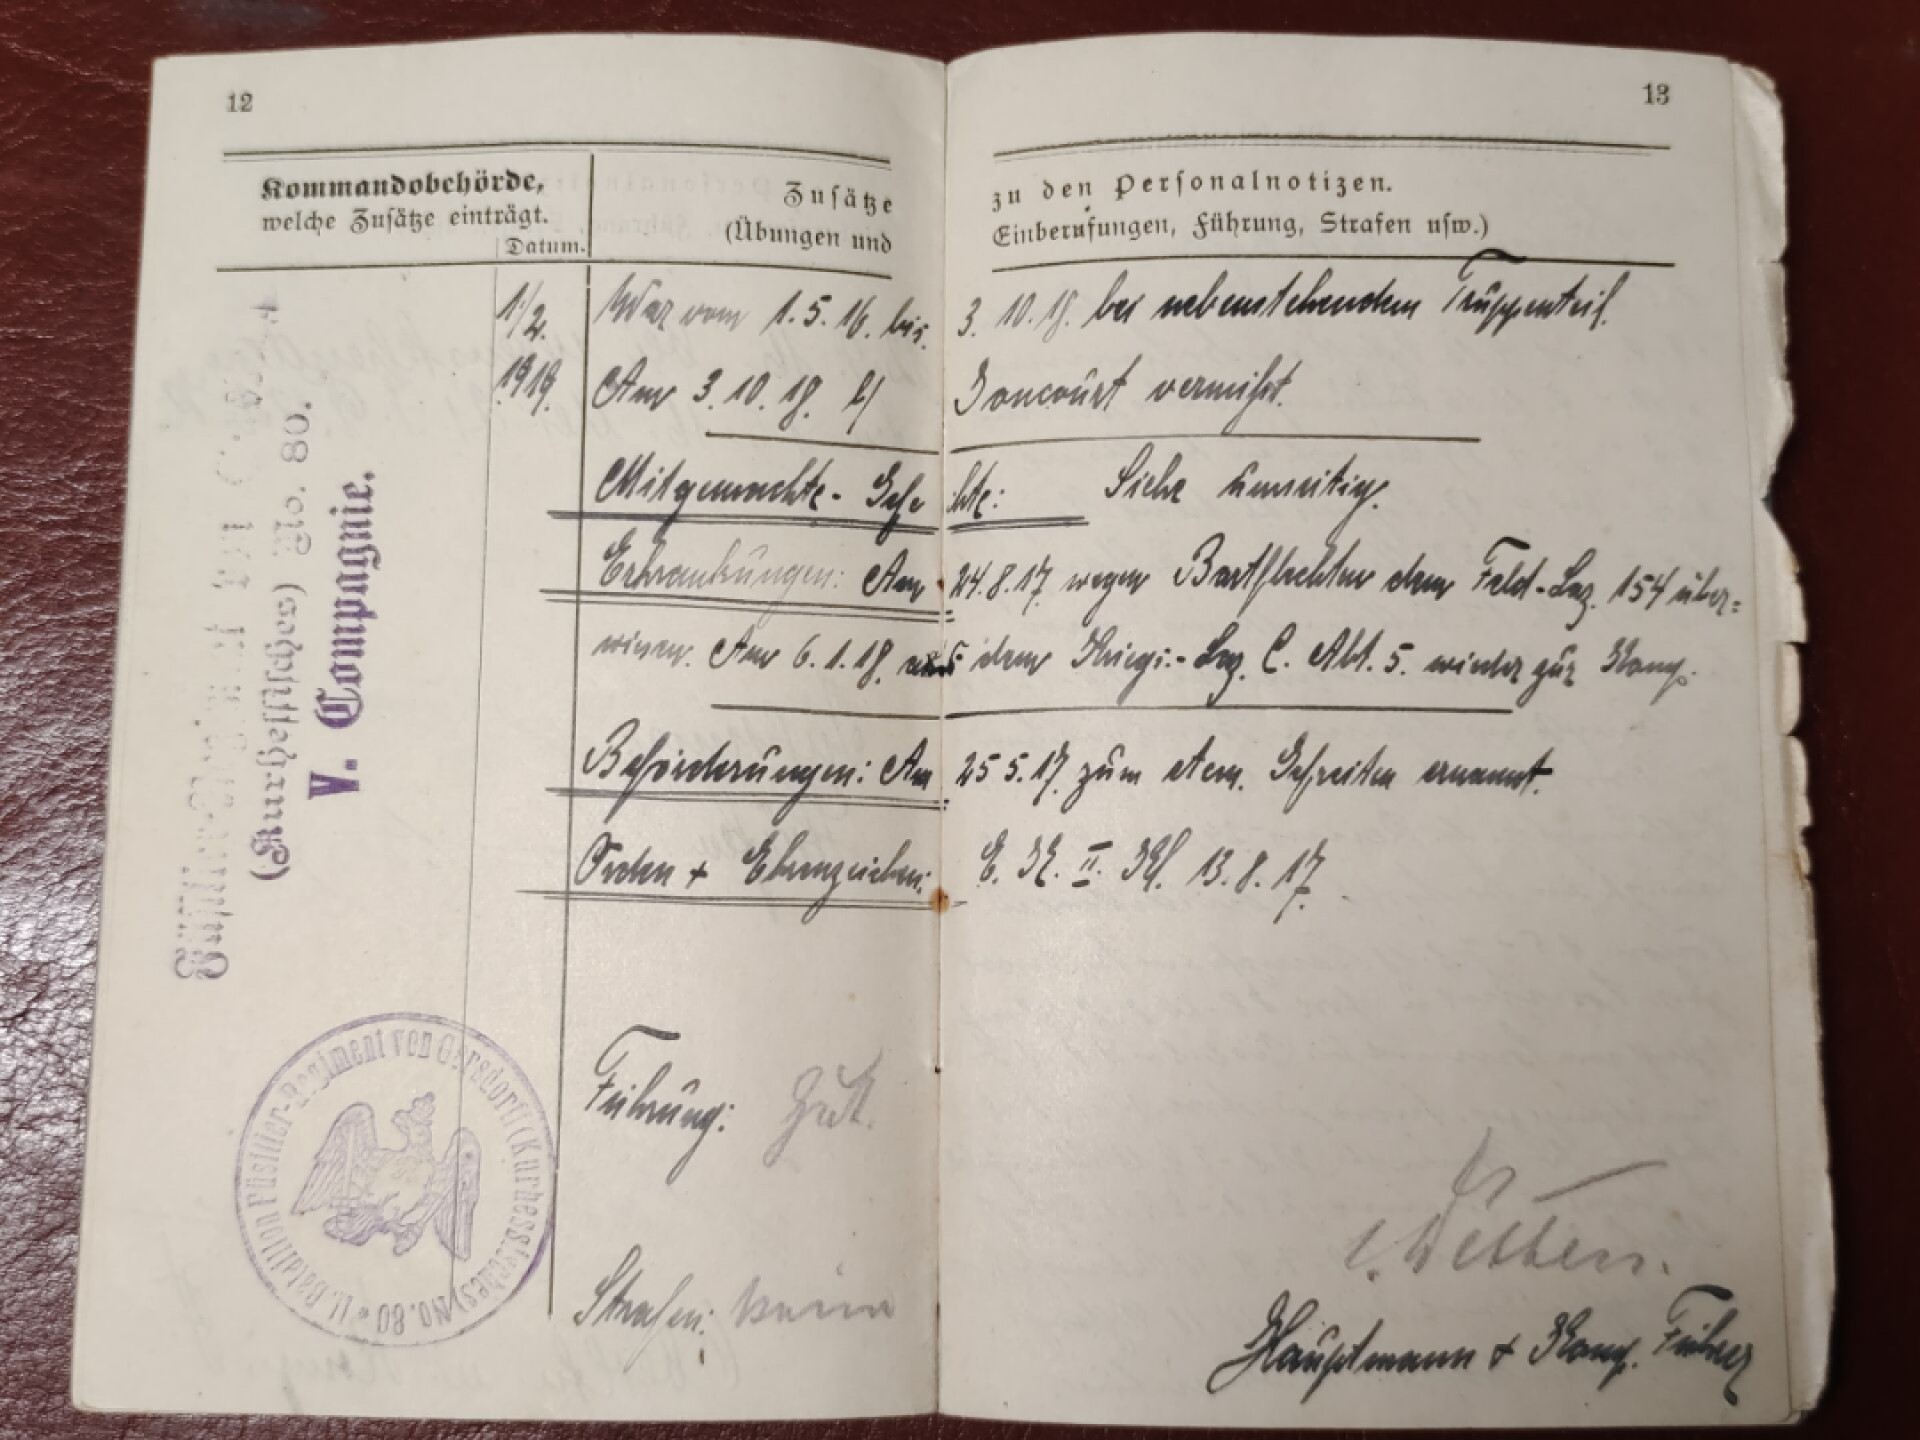 12
13
Kommandobehörde,
welche Zusätze einträgt.
Datum.
Zusätze zu den Personalnotizen.
(Übungen und Einberufungen, Führung, Strafen usw.)
1/2. War vom 1.5.16. bis 3.10.18. bei nebenstehendem Truppenteil.
1919. Am 3.10.18. b/ Joncourt vermißt.
Mitgemachte-Gefechte: Siehe umseitig.
Erkrankungen: Am 24.8.17. wegen Bartflechten dem Feld-Laz. 154 über=
wiesen. Am 6.1.18. aus dem Kriegs.-Laz. C. Abt. 5. wieder zur Komp.
Beförderungen: Am 25 5.17. zum etem. Gefreiten ernannt.
Orden + Ehrenzeichen: E. K. II. Kl. 13.8.17.
Führung: Gut.
Strafen: keine
Hauptmann + Komp. Führer
(Kurhessisches) No. 80.
V. Compagnie.
II. Bataillon Füsilier-Regiment von Gersdorff (Kurhessisches) No. 80